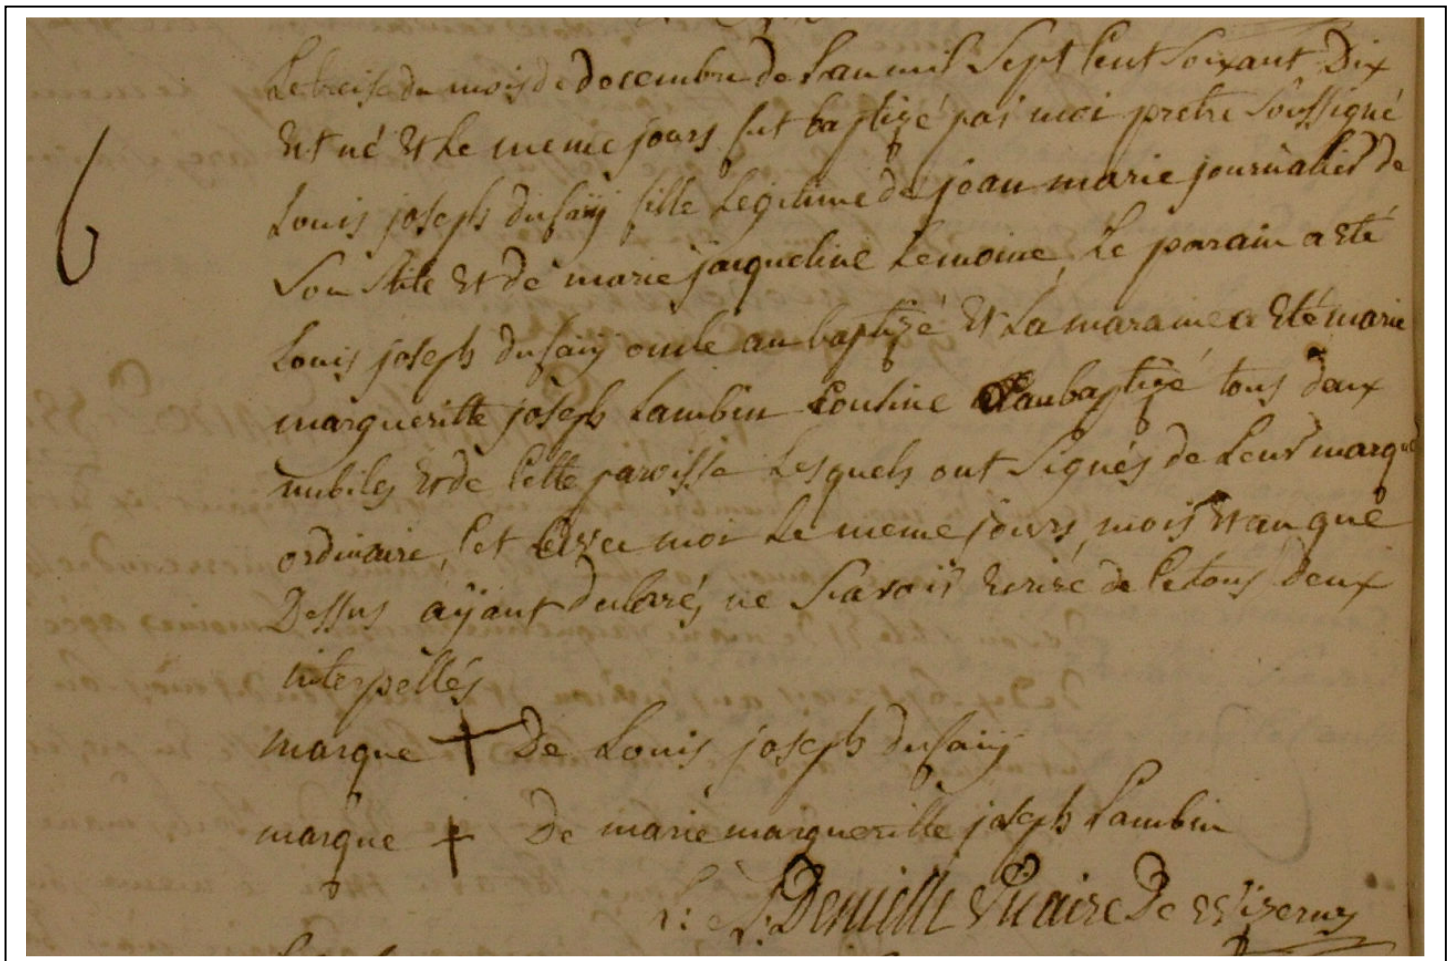 Le treise du mois de decembre de L'an mil Sept Cent Soixant Dix
Est né Et Le meme jours fut baptizé par moi pretre Soussigné
6
Louis joseph dufaÿ fille Legitime de jean marie journalier de
Son Stile Et de marie jacqueline Lemoine, Le parain a Eté
Louis joseph dufaÿ oncle au baptizé Et La maraine a Eté marie
margueritte joseph Lambin Cousine au baptizé tous deux
nubiles Et de Cette paroisse Lesquels ont Signés de Leur marque
ordinaire, Cet avec moi Le meme jours, mois Et an que
Dessus aÿant declaré, ne Scavoir Ecrire de Ce tous deux
interpellés
marque De Louis joseph dufaÿ
marque De marie margueritte joseph Lambin
Denielle Vicaire De Wizernes